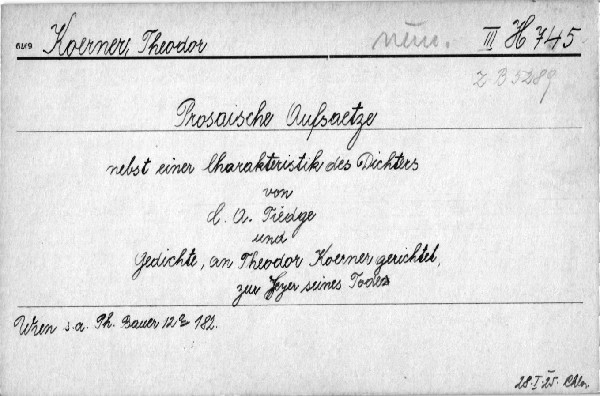 6119 Koerner, Theodor III H 745
Z B 5289
Prosaische Aufsaetze
nebst einer Charakteristik des Dichters
von
C. A. Tiedge
und
Gedichte, an Theodor Koerner gerichtet,
zur Feyer seines Todes
Wien s.a. Ph. Bauer 12º 182.
28.I.25.